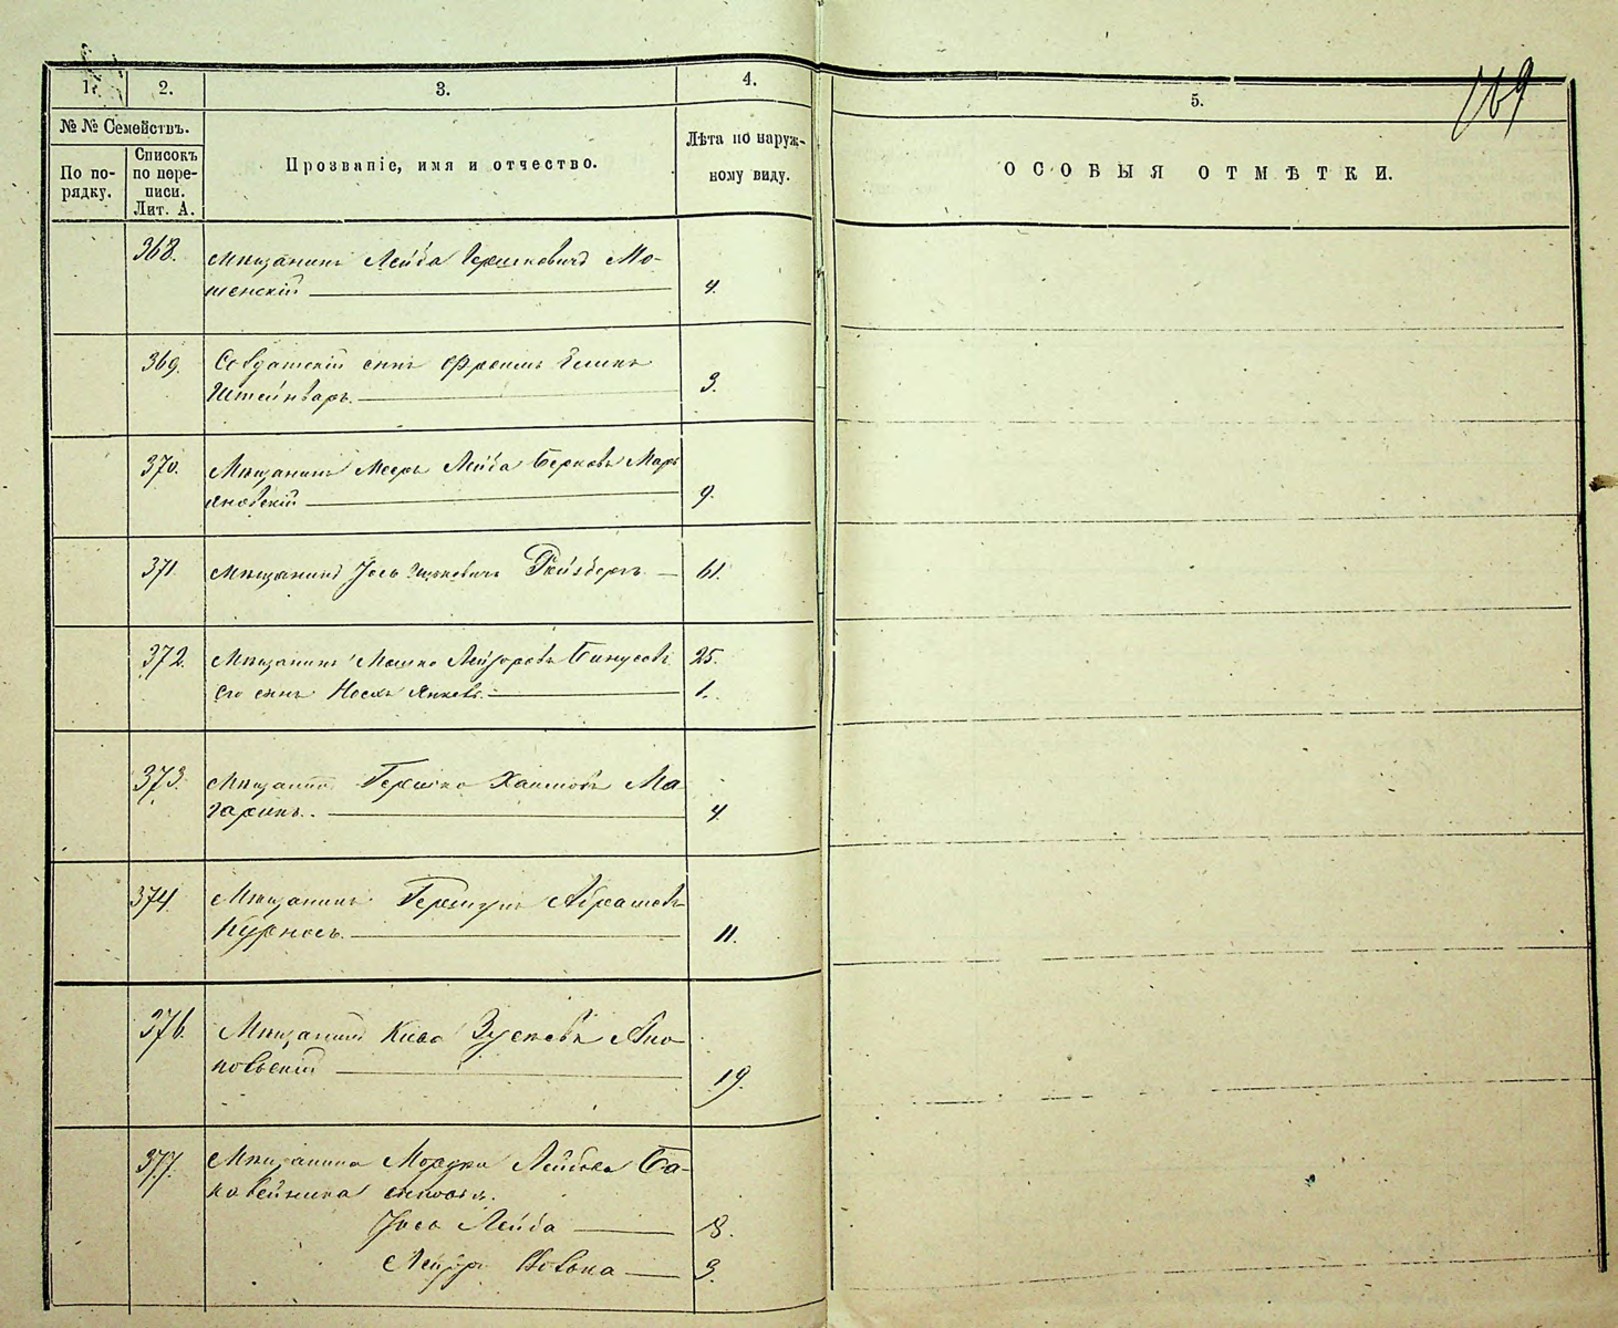 169
1. 2. 3. 4. 5.
№ № Семействъ.
По по-
рядку.
Списокъ
по пере-
писи.
Лит. А.
Прозваніе, имя и отчество.
Лѣта по наруж-
ному виду.
ОСОБЫЯ ОТМѢТКИ.
368. Мѣщанинъ Лейба Гершковичъ Мо-
шенскій 4.
369. Солдатскій сынъ Фроимъ
Штейнваръ. 3.
370. Мѣщанинъ Мееръ Лейба Берковъ Марь
яновскій 9.
371 Мѣщанинъ Іось Ицковичъ 61.
372. Мѣщанинъ Мошко Лейзоровъ 25.
его сынъ 1.
373. Мѣщанинъ Гершко Хаимовъ Ма
гарикъ. 4
374. Мѣщанинъ Гершунъ Абрамовъ
Курносъ. 11.
376. Мѣщанинъ Кива Зусевъ
повскій 19.
377. Мѣщанина Мордки Лейбова Ба-
сыновья.
Іось Лейба 8.
Лейзоръ Волька 3.